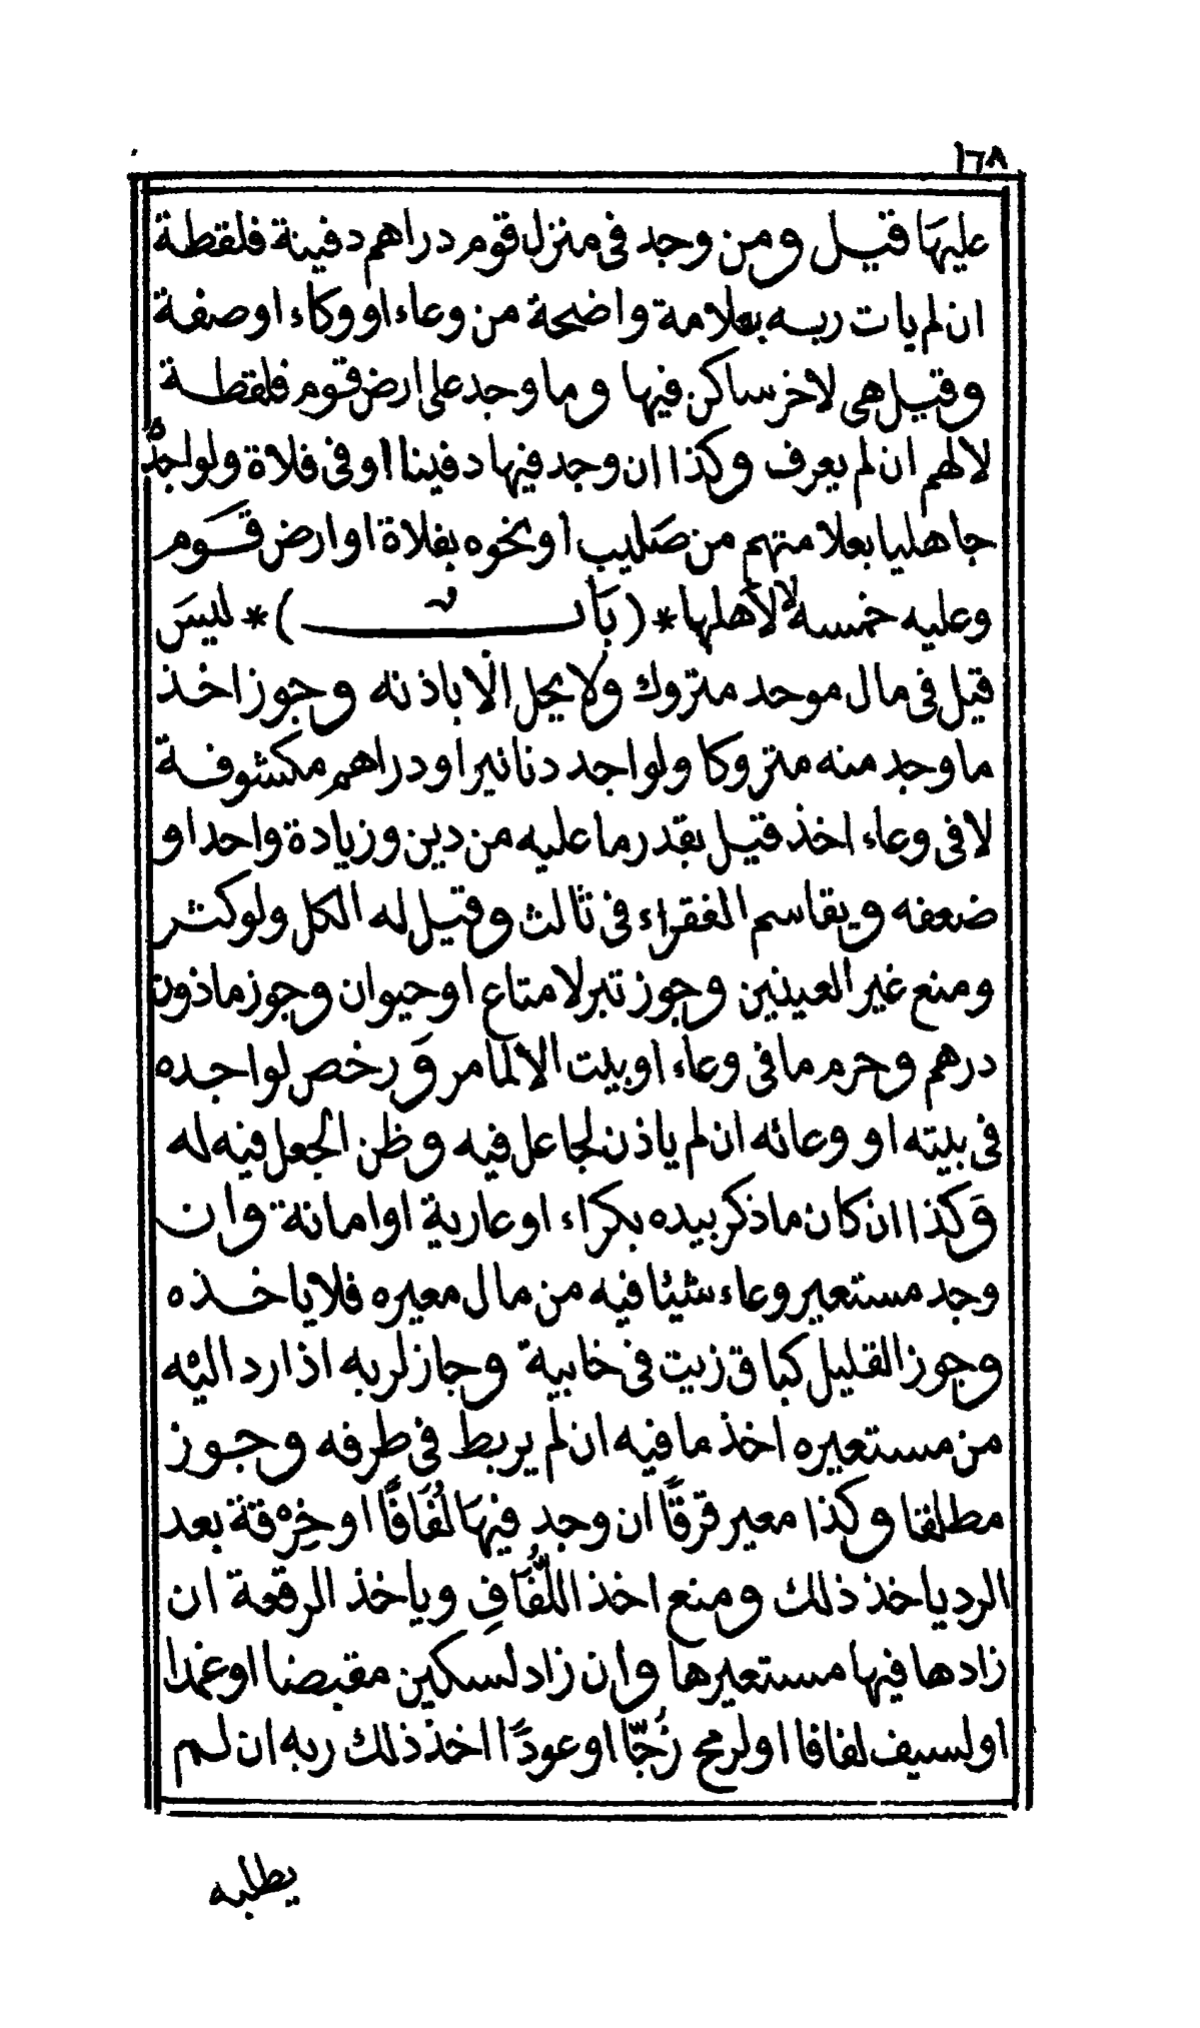 ١٦٨
عليهَا قيل ومن وجد في منزل قوم دراهم دفينة فلقطة
ان لم يات ربه بعلامة واضحة من وعاء او وكاء او صفة
وقيل هى لاخر ساكن فيها وما وجد على ارض قوم فلقطة
لا لهم ان لم يعرف وكذا ان وجد فيها دفينا او في فلاة ولواجدٌ
جاهليا بعلامتهم من صَليب او نحوه بفلاة او ارض قَوم
وعليه خمسه لا لأهلها * ( بَاب ) * ليسَ
قيل في مال موحد متروك ولا يحل إلّا باذنه وجوز اخذ
ما وجد منه متروكا ولواجد دنانير او دراهم مكشوفة
لا في وعاء اخذ قيل بقدر ما عليه من دين وزيادة واحد او
ضعفه ويقاسم الفقراء في ثالث وقيل له الكل ولو كثر
ومنع غير العينين وجوز تبر لا متاع او حيوان وجوز مادون
درهم وحرم ما في وعاء او بيت الا لمامر وَرخص لواجده
في بيته او وعائه ان لم ياذن لجاعل فيه وظن الجعل فيه له
وَكذا ان كان ماذكر بيده بكراء او عارية او امانة وان
وجد مستعير وعاء شيئا فيه من مال معيره فلا ياخذه
وجوز القليل كباقي زيت في خابية وجاز لربه اذا رد اليْه
من مستعيره اخذ ما فيه ان لم يربط في طرفه وجوز
مطلقا وكذا معير قرقًا ان وجد فيهَا لُفَافًا او خِرْقة بعد
الرد ياخذ ذلك ومنع اخذ اللُّفَافِ وياخذ الرقعة ان
زادها فيها مستعيرها وان زاد لسكين مقبضا او غمدا
او لسيف لفافا او لرمح زُجًّا او عودًا اخذ ذلك ربه ان لم
يطلبه